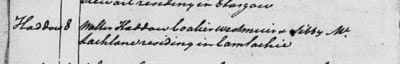 Stewart residing in Glasgow
Haddow 8 Walter Haddow Coalier Westmuir & Libby Mc
Lachlane residing in Camlachie